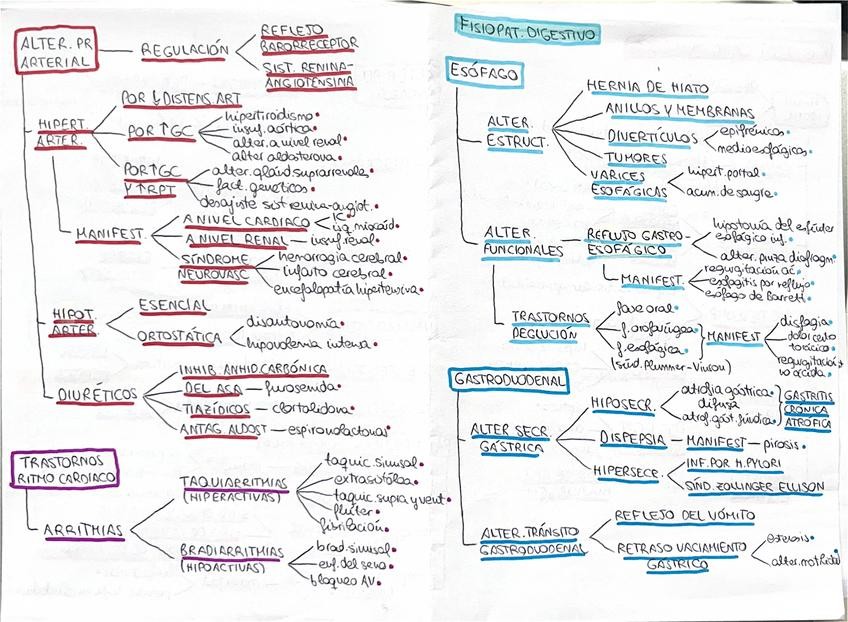 ALTER. PR
ARTERIAL
REGULACIÓN
REFLEJO
BARORRECEPTOR
SIST. RENINA-
ANGIOTENSINA
HIPERT.
ARTER.
POR ↓ DISTENS. ART
POR ↑GC
hipertiroidismo
insuf. aórtica
alter. a nivel renal
alter aldosterona
POR ↑GC
Y ↑RPT
alter. gland suprarrenale
fact. genéticos
desajuste sist renina-angiot.
MANIFEST.
A NIVEL CARDIACO
IC
isq. miocard.
A NIVEL RENAL — insuf. renal
SÍNDROME
NEUROVASC
hemorragia cerebral
infarto cerebral
encefalopatía hipertensiva
HIPOT.
ARTER.
ESENCIAL
ORTOSTÁTICA
disautonomía
hipovolemia intensa
DIURÉTICOS
INHIB. ANHID. CARBÓNICA
DEL ASA — furosemida
TIAZÍDICOS — clortalidona
ANTAG ALDOST — espironolactona
TRASTORNOS
RITMO CARDIACO
ARRITMIAS
TAQUIARRITMIAS
(HIPERACTIVAS)
taquic. sinusal
extrasístole
taquic. supra y vent
flúter
fibrilación
BRADIARRITMIAS
(HIPOACTIVAS)
brad. sinusal
enf. del seno
bloqueo AV
FISIOPAT. DIGESTIVO
ESÓFAGO
ALTER.
ESTRUCT.
HERNIA DE HIATO
ANILLOS Y MEMBRANAS
DIVERTÍCULOS
epifrénicos
medioesofágicos
TUMORES
VARICES
ESOFÁGICAS
hipert. portal
acum. de sangre
ALTER.
FUNCIONALES
REFLUJO GASTRO-
ESOFÁGICO
hipotonía del esfínter
esofágico inf.
alter. pinza diafragm
MANIFEST.
regurgitación ác.
esofagitis por reflujo
esófago de Barrett
TRASTORNOS
DEGLUCIÓN
fase oral
f. orofaríngea
f. esofágica
(sínd. Plummer-Vinson)
MANIFEST
disfagia
dolor
torácico
regurgitación
no ácida
GASTRODUODENAL
ALTER SECR.
GÁSTRICA
HIPOSECR.
atrofia gástrica
difusa
atrof. gást. fúndica
GASTRITIS
CRÓNICA
ATRÓFICA
DISPEPSIA — MANIFEST — pirosis
HIPERSECR.
INF. POR H. PYLORI
SÍND. ZOLLINGER ELLISON
ALTER. TRÁNSITO
GASTRODUODENAL
REFLEJO DEL VÓMITO
RETRASO VACIAMIENTO
GÁSTRICO
estenosis
alter. motricidad